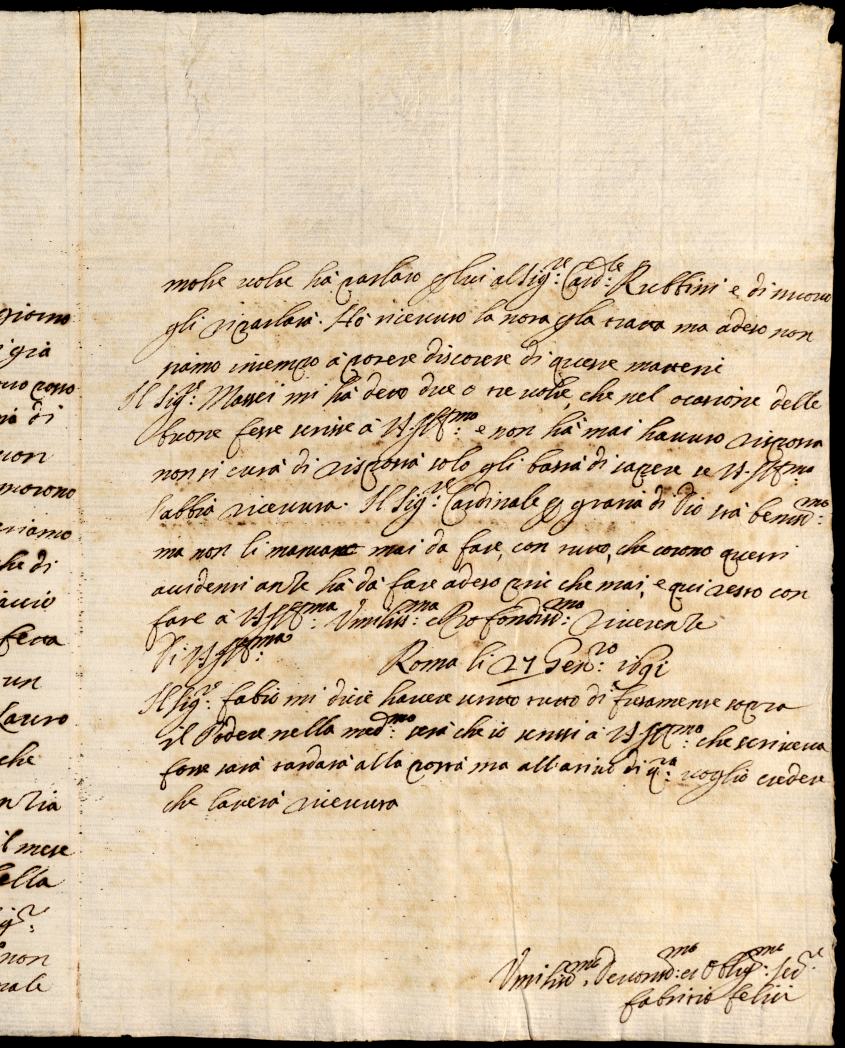 giorno
già
posso
di
non
che di
un
Lauro
che
il mese
ella
non
molte volte hà parlato al Sig:re Card:le Rubbini e di nuovo
gli riparlarà. Hò ricevuto la nota ma adeso non
siamo in tempo à potere discorere di queste matterie
Il Sig:re Massei mi hà deto due o tre volte, che nel ocasione delle
buone feste scrisse à VS Ill:ma e non hà mai havuto risposta
non si curà di risposta solo gli basta di sapere se VS Ill:ma
l'abbia ricevuta. Il Sig:re Cardinale p gratia di Dio stà beniss:mo
ma non li mancano mai da fare, con tutto, che corono questi
accidenti ante hà dà fare adeso più che mai, e qui resto con
fare à VS Ill:ma Umiliss:ma e Profondiss:ma riverente
Di VS Ill:ma Roma li 27 Gen:ro 1691
Il Sig:re Fabio mi dice havere scritto tutto di sopra
il Podere nella med:mo serà che io scrissi à VS Ill:ma che scriveva
forse sarà tardata alla posta ma all'arivo di q:ta voglio credere
che l'averà ricevuta
Umiliss:mo Devotiss:mo et Oblig:mo Ser:re
Fabritio Felici